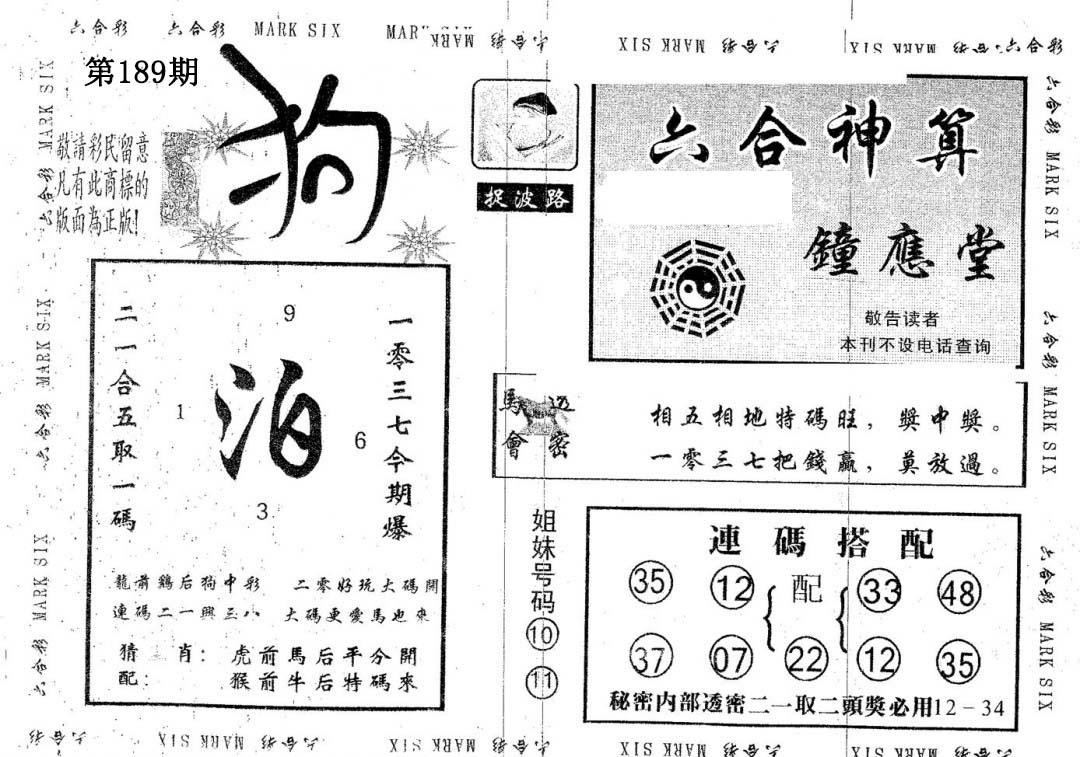 六合彩 六合彩 MARK SIX MARK MARK 六合彩
MARK SIX 六合彩 MARK SIX 六合彩 六合彩
第189期
狗
敬請彩民留意
凡有此商標的
版面為正版!
捉波路
六合神算
鐘應堂
敬告读者
本刊不设电话查询
二一合五取一碼
9
1
泊
6
3
一零三七今期爆
龍前鷄后狗中彩 二零好玩大碼開
連碼二一興三八 大碼更愛馬也來
猜 肖: 虎前馬后平分開
配: 猴前牛后特碼來
馬會
透密
相五相地特碼旺,獎中獎。
一零三七把錢贏,莫放過。
姐妹号码
10
11
連碼搭配
35 12 配 33 48
37 07 22 12 35
秘密内部透密二一取二頭獎必用12-34
六合彩 MARK SIX 六合彩 MARK SIX 六合彩 MARK SIX
六合彩 MARK SIX 六合彩 MARK SIX 六合彩 MARK SIX
六合彩 MARK SIX 六合彩 MARK SIX 六合彩
MARK SIX 六合彩 MARK SIX 六合彩